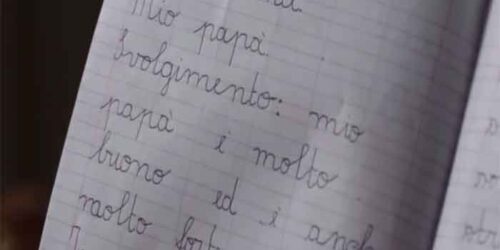 Mio papà.
Svolgimento: mio
papà è molto
buono ed è anch
molto fort